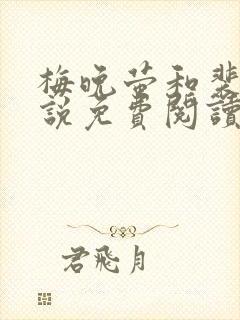 梅晚萤和裴
説免費閱讀
君飛月